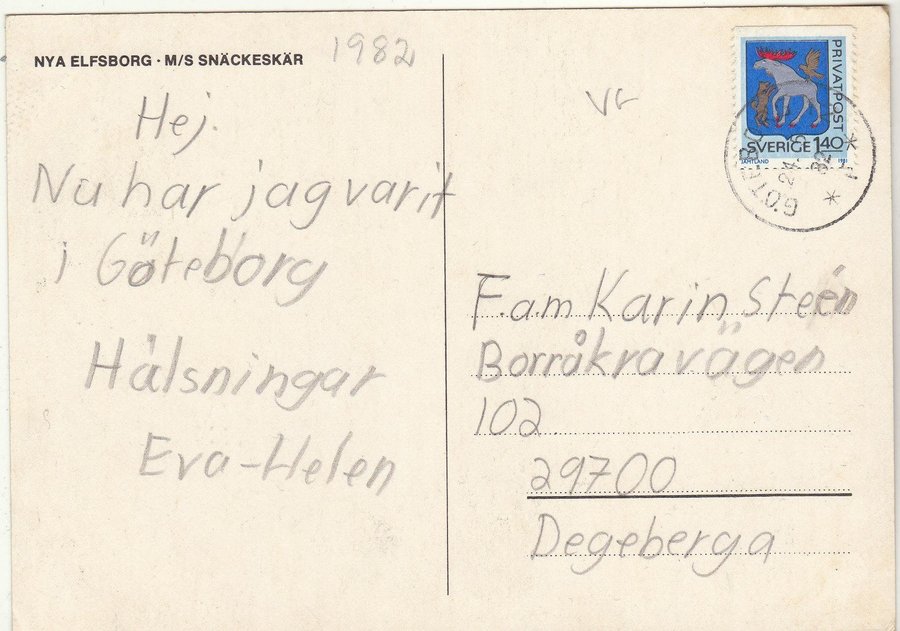 NYA ELFSBORG · M/S SNÄCKESKÄR
1982
Hej.
Nu har jag varit
i Göteborg
Hälsningar
Eva-Helen
PRIVATPOST
SVERIGE 1.40
JÄMTLAND 1981
24
82
Fam Karin Steén
Borråkravägen
102
29700
Degeberga